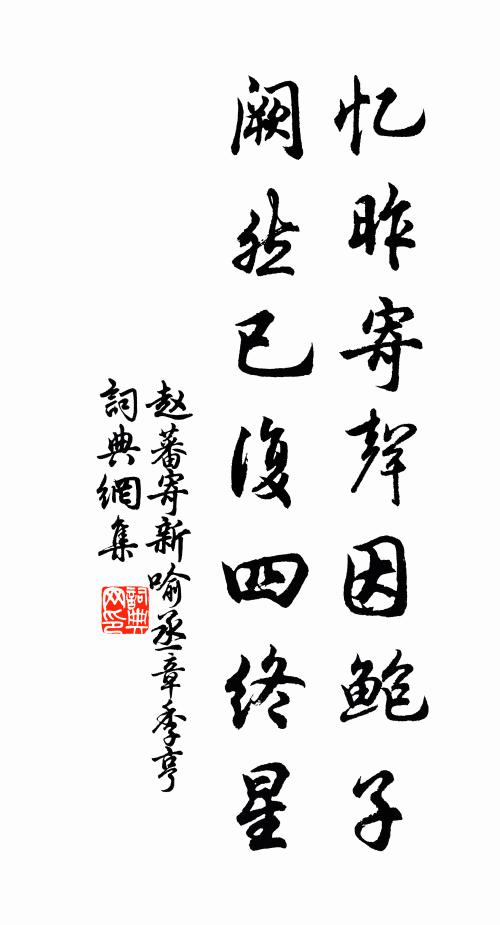 忆昨寄聲因鲍子
阙然已復四终星
赵蕃寄新喻丞章季亨
詞典網集
詞典网印